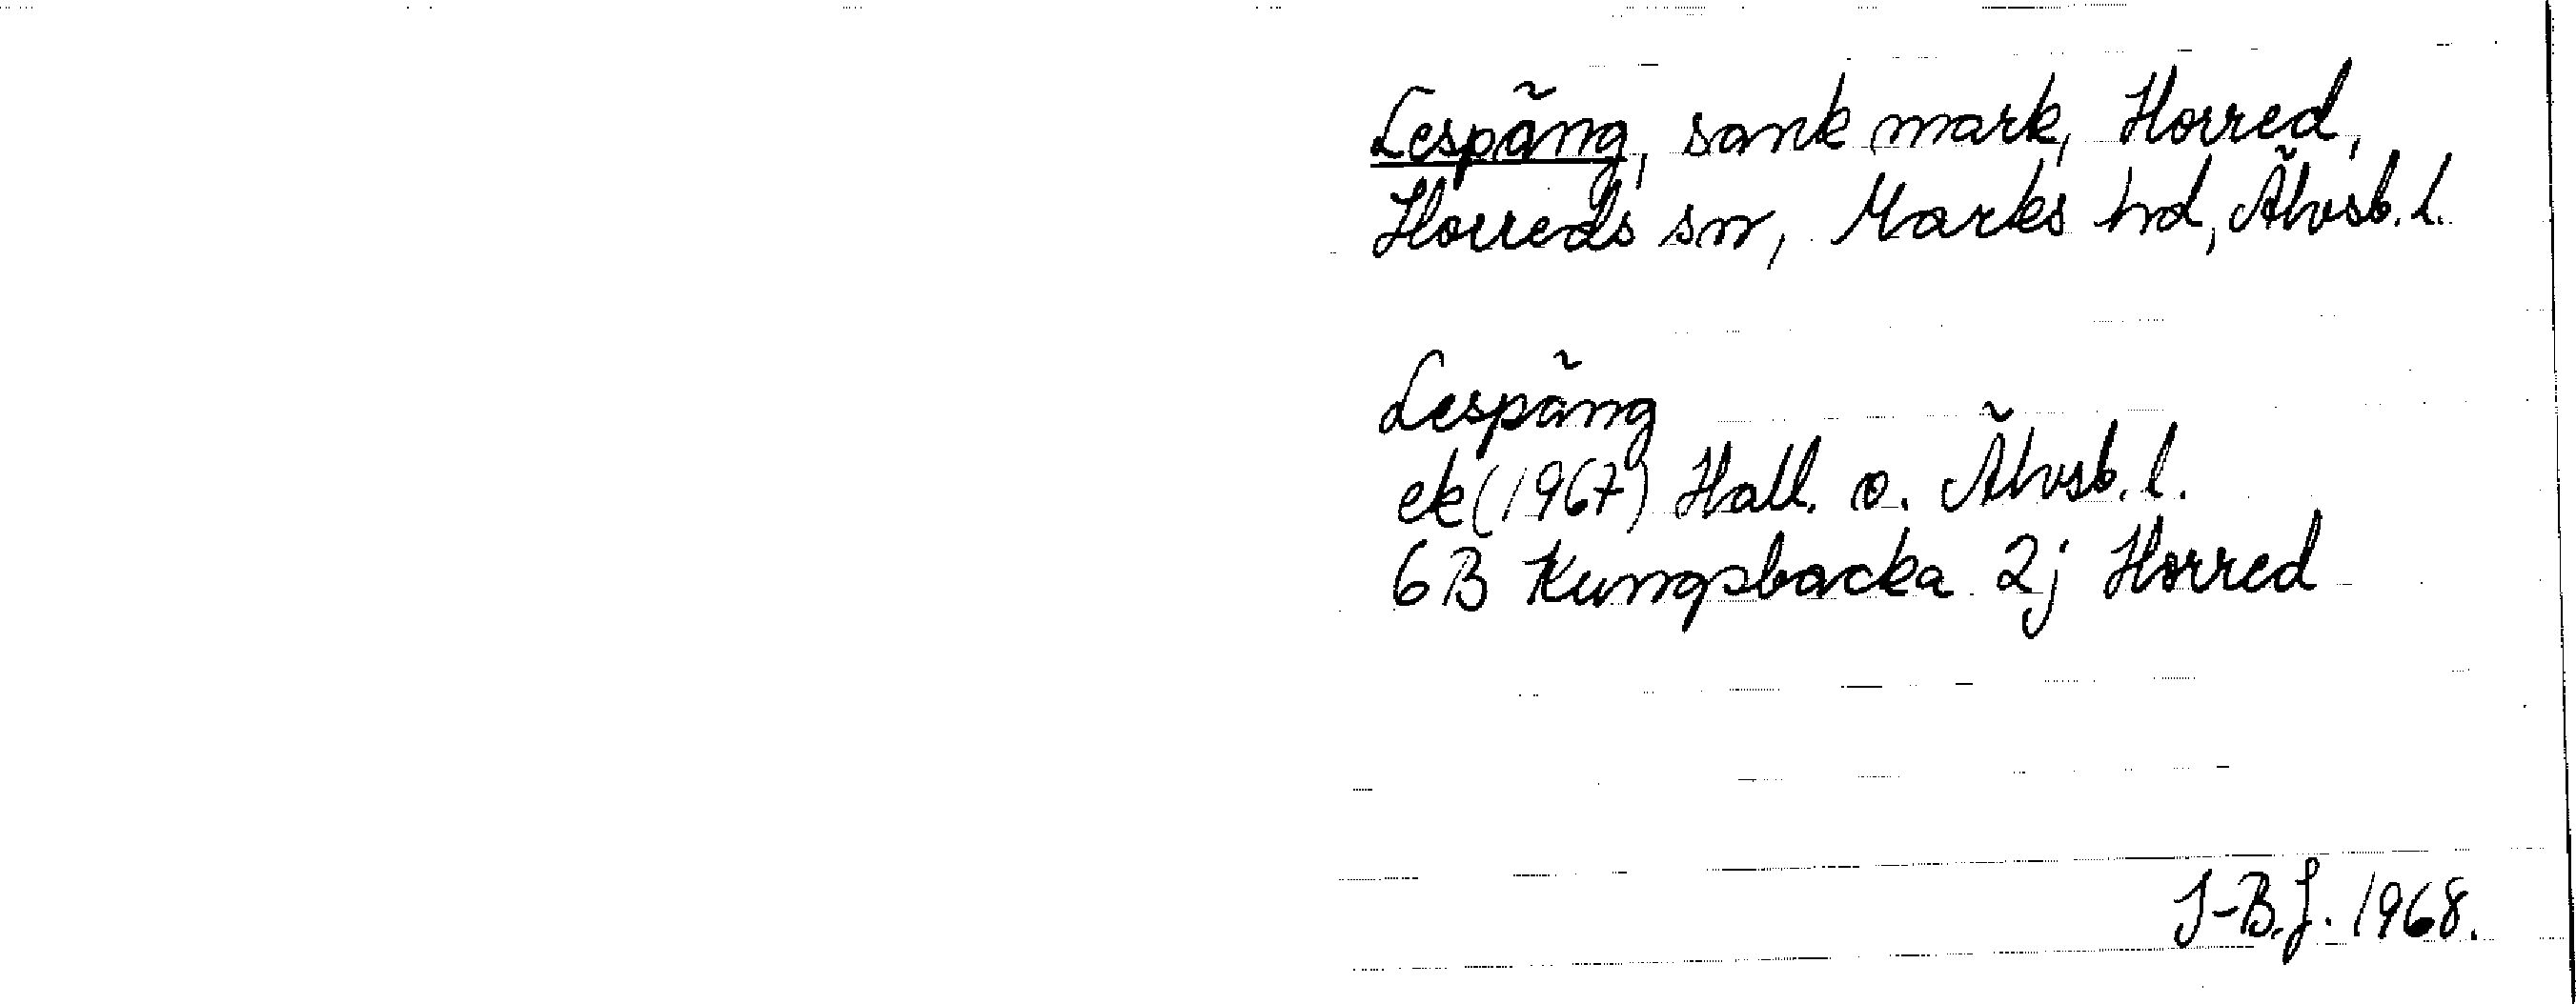 Lespäng, sank mark, Horred,
Horreds sn, Marks hd, Älvsb. l.
Lespäng
ek (1967) Hall. o. Älvsb. l.
6B Kungsbacka 2j Horred
J-B.J. 1968.